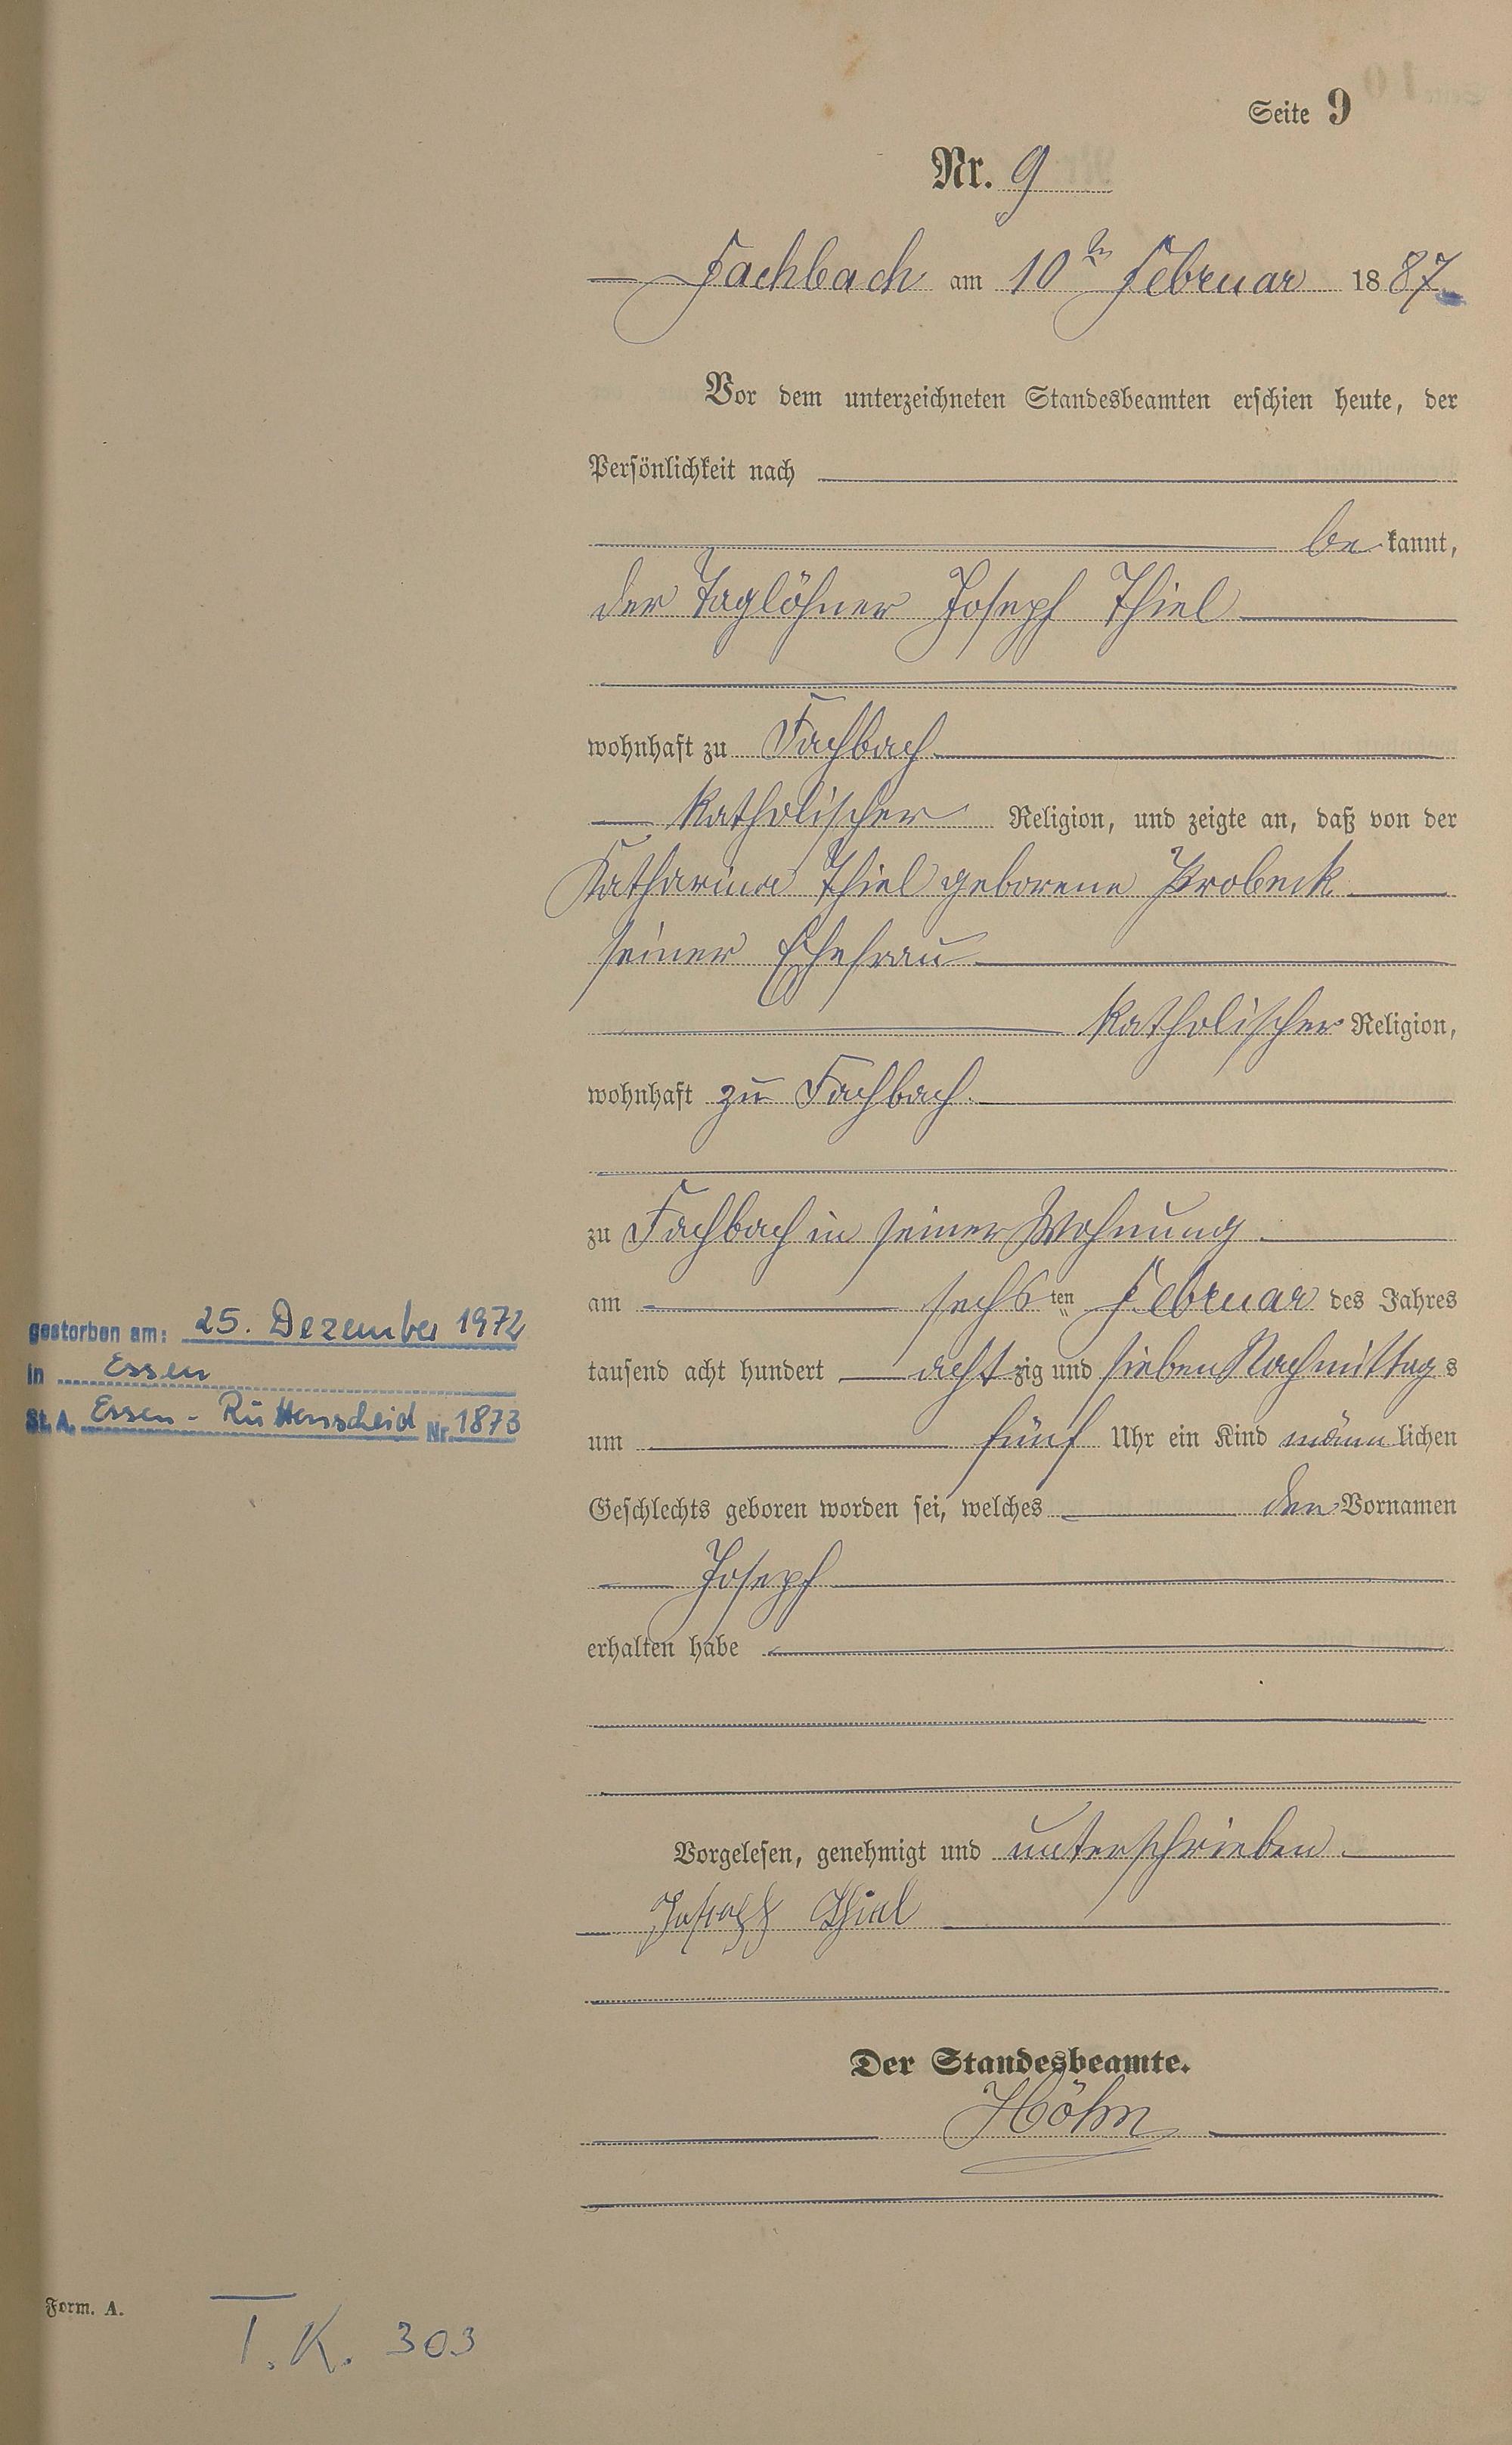 Seite 9
Nr. 9
Fachbach am 10ten Februar 1887
Vor dem unterzeichneten Standesbeamten erschien heute, der
Persönlichkeit nach
bekannt,
der Taglöhner Joseph Thiel
wohnhaft zu Fachbach
katholischer Religion, und zeigte an, daß von der
Katharina Thiel geborene Probeck
seiner Ehefrau
katholischer Religion,
wohnhaft zu Fachbach
zu Fachbach in seiner Wohnung
am sechsten Februar des Jahres
tausend acht hundert achtzig und sieben Nachmittags
um fünf Uhr ein Kind männlichen
Geschlechts geboren worden sei, welches den Vornamen
Joseph
erhalten habe
Vorgelesen, genehmigt und unterschrieben.
Joseph Thiel
Der Standesbeamte.
Höhn
gestorben am: 25. Dezember 1972
in Essen
St. A. Essen-Rüttenscheid Nr. 1873
Form. A.
T.K. 303